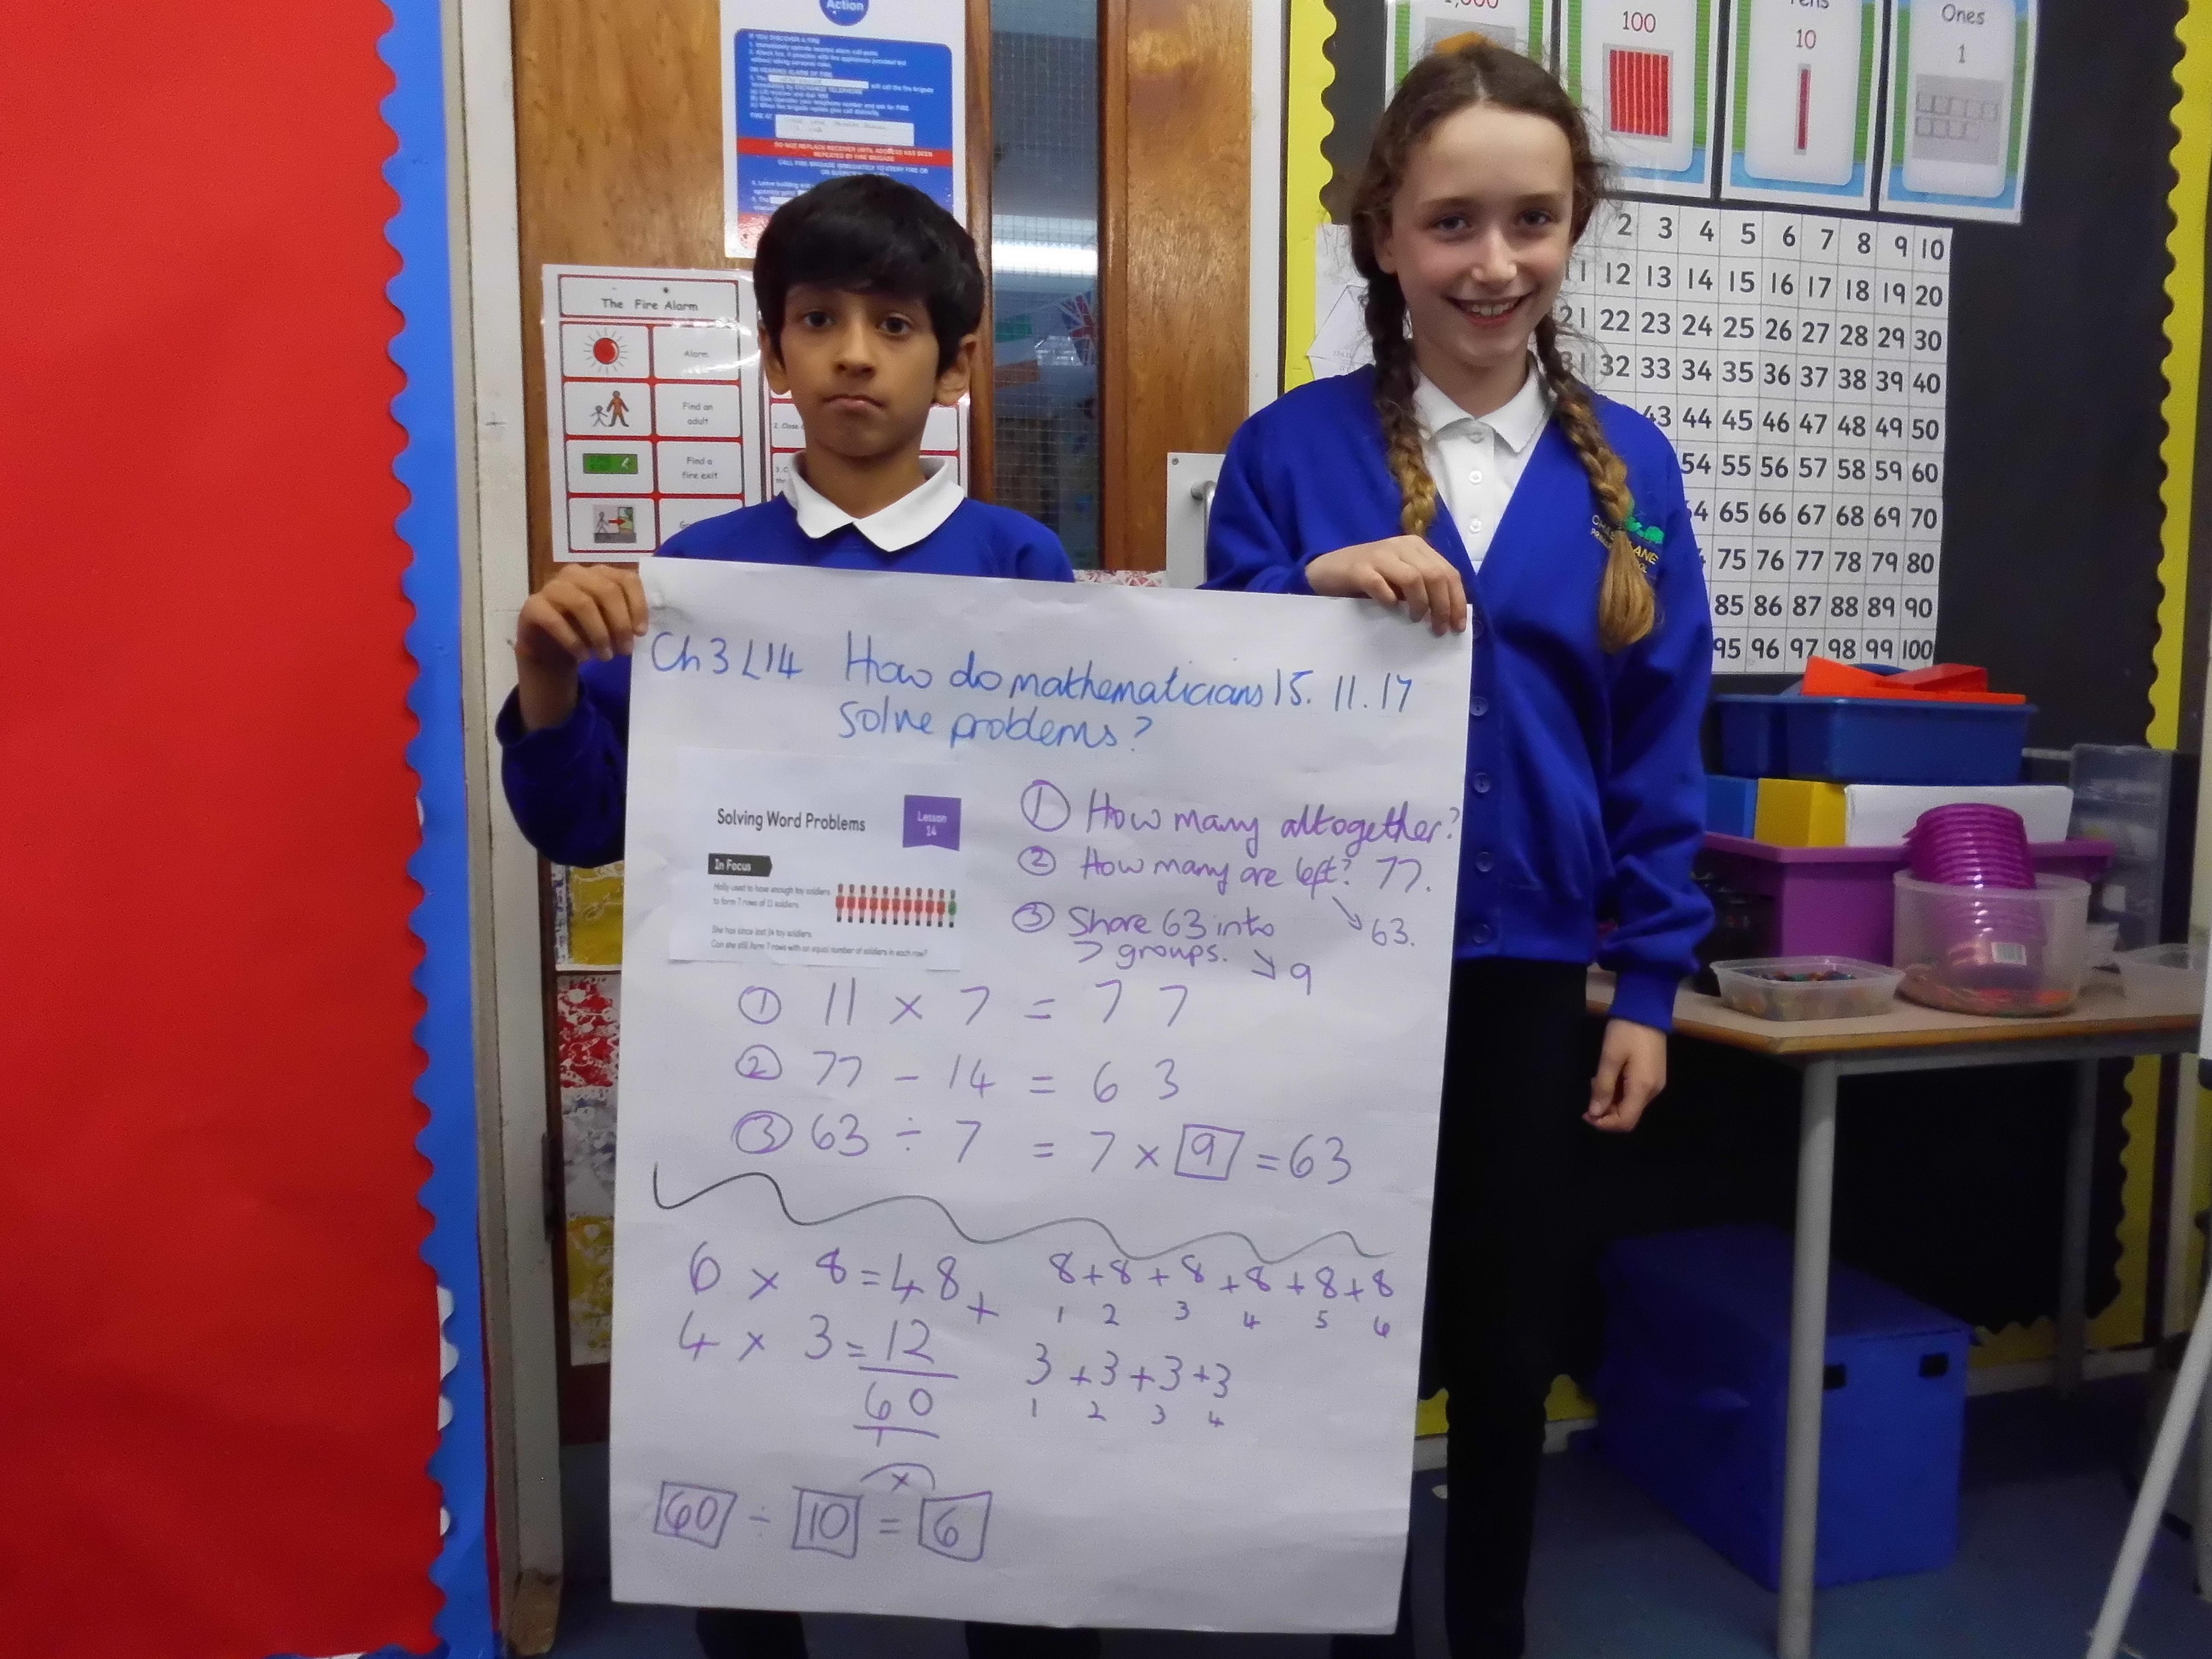 Action
IF YOU DISCOVER A FIRE
DO NOT REPLACE RECEIVER UNTIL ADDRESS HAS BEEN
REPEATED BY FIRE BRIGADE
The Fire Alarm
Alarm
Find an
adult
Find a
fire exit
1,000
100
Tens
10
Ones
1
2 3 4 5 6 7 8 9 10
11 12 13 14 15 16 17 18 19 20
21 22 23 24 25 26 27 28 29 30
31 32 33 34 35 36 37 38 39 40
43 44 45 46 47 48 49 50
54 55 56 57 58 59 60
64 65 66 67 68 69 70
75 76 77 78 79 80
85 86 87 88 89 90
95 96 97 98 99 100
LANE
Ch 3 L14 How do mathematicians 15.11.17
solve problems?
Solving Word Problems
Lesson
14
In Focus
Holly used to have enough toy soldiers
to form 7 rows of 11 soldiers.
She has since lost 14 toy soldiers.
Can she still form 7 rows with an equal number of soldiers in each row?
① How many altogether?
② How many are left? 77.
63.
③ Share 63 into
7 groups. 9
① 11 × 7 = 77
② 77 - 14 = 63
③ 63 ÷ 7 = 7 × 9 = 63
6 × 8 = 48 +
4 × 3 = 12
60
1
8+8+8+8+8+8
1 2 3 4 5 6
3+3+3+3
1 2 3 4
×
60 ÷ 10 = 6